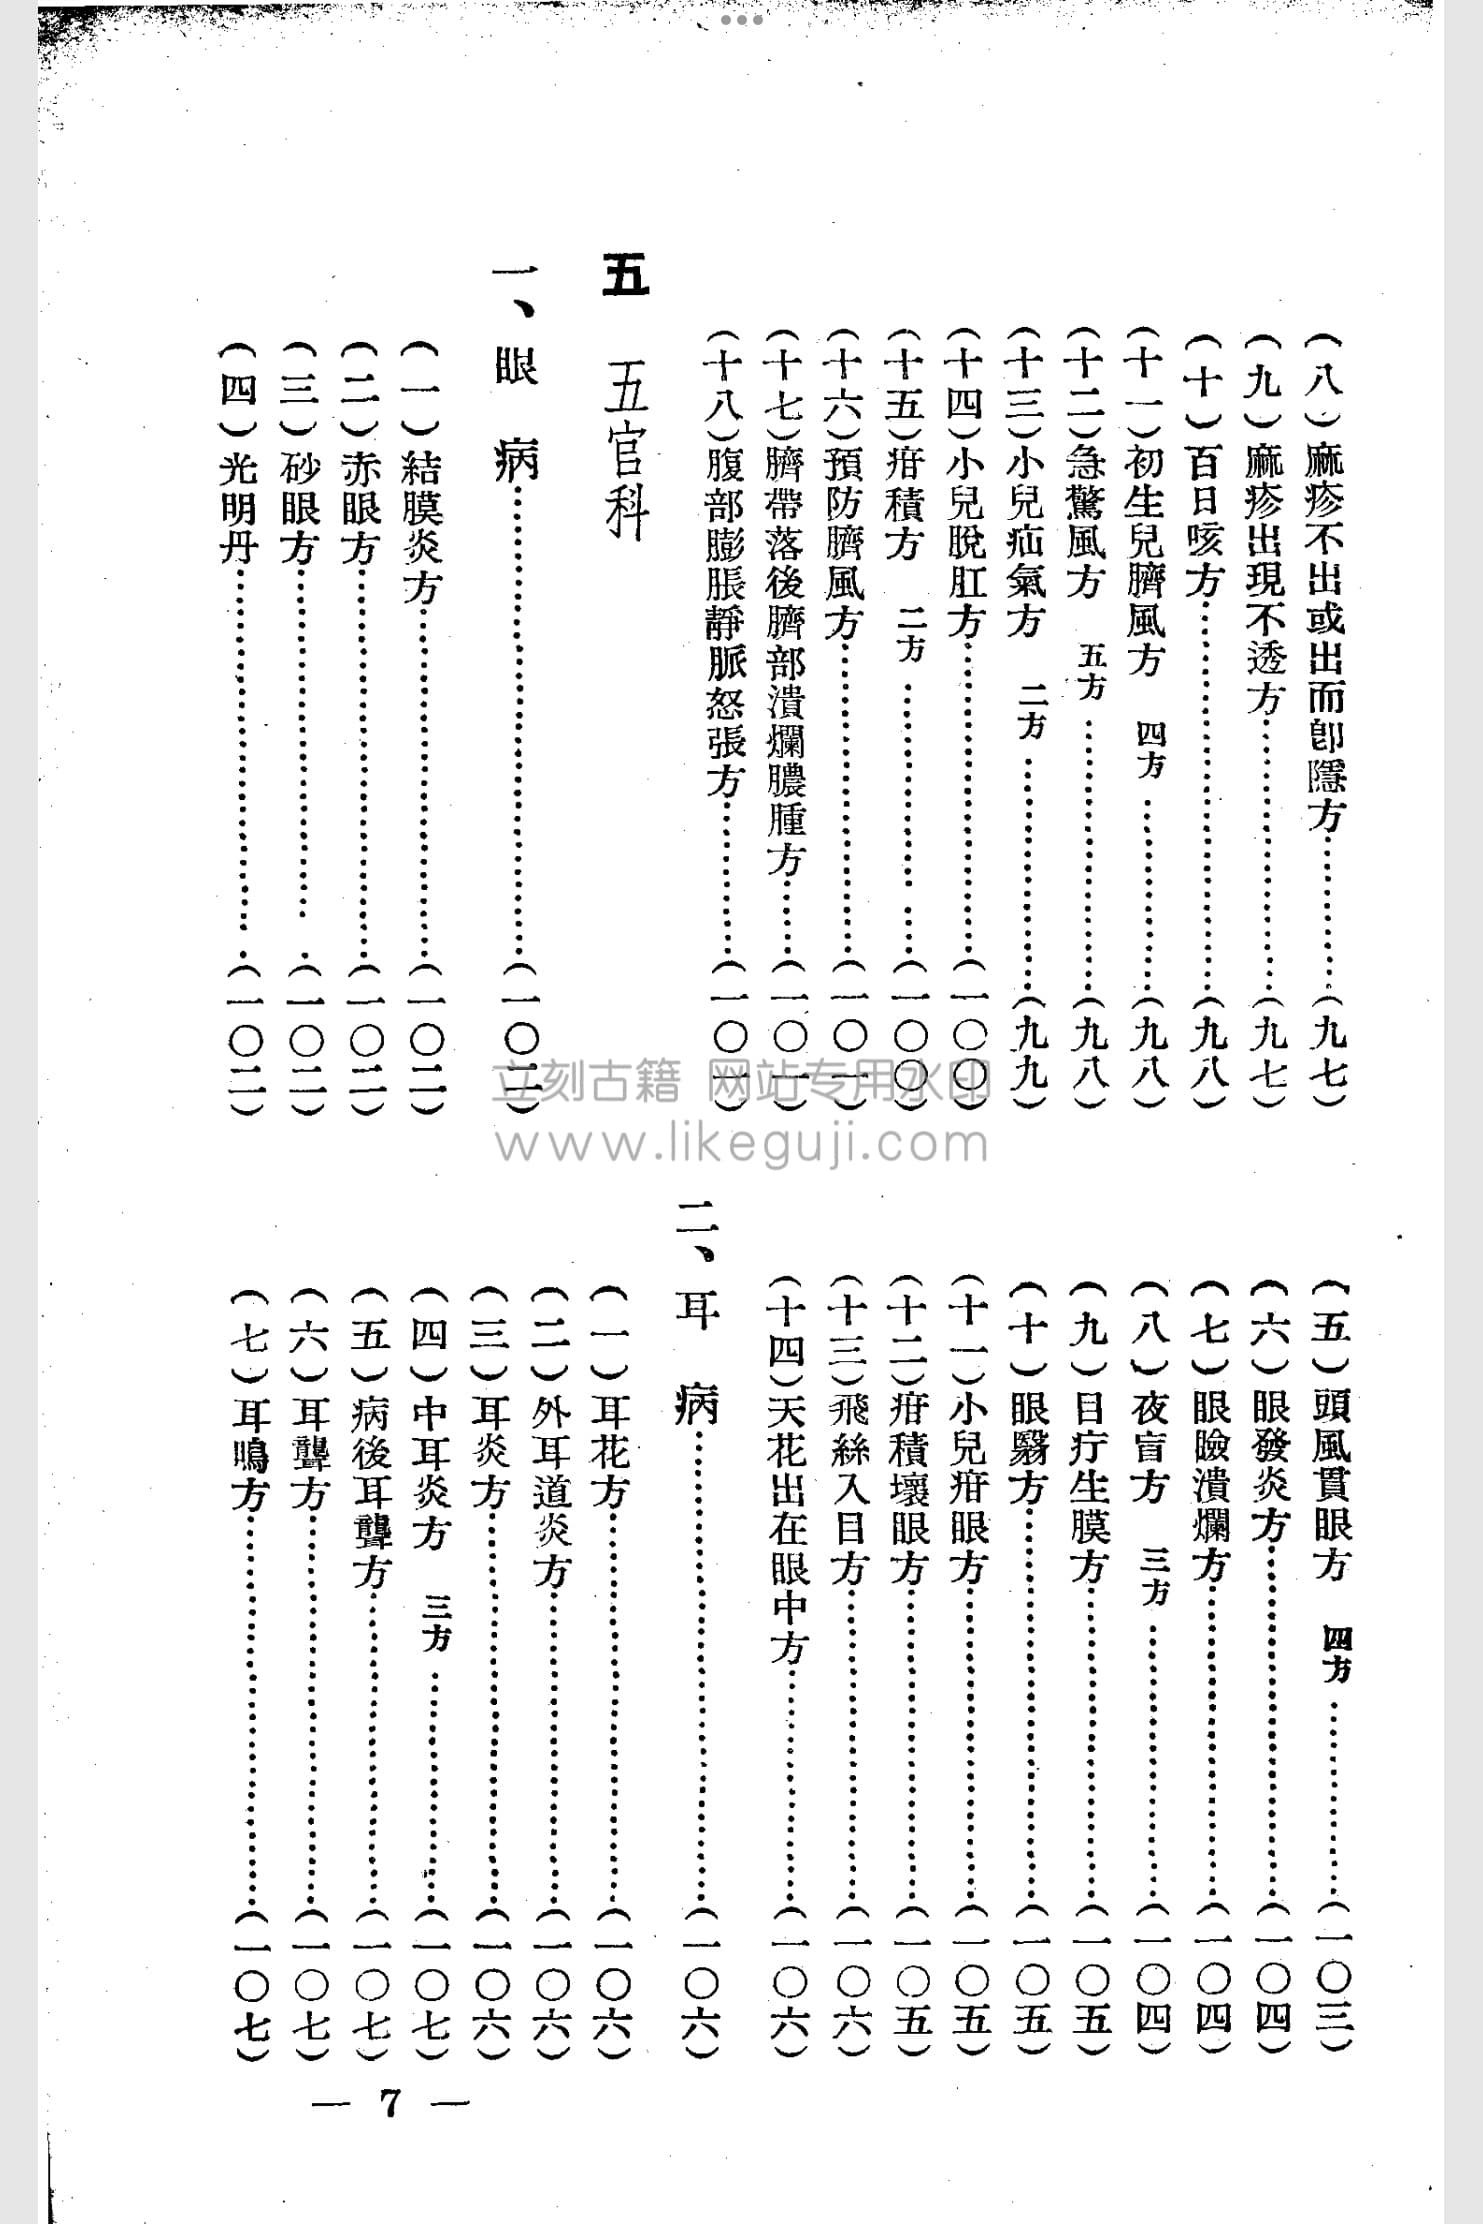 （八）麻疹不出或出而卽隱方…………（九七）
（九）麻疹出現不透方…………（九七）
（十）百日咳方…………（九八）
（十一）初生兒臍風方　四方…………（九八）
（十二）急驚風方　五方…………（九八）
（十三）小兒疝氣方　二方…………（九九）
（十四）小兒脫肛方…………（一〇〇）
（十五）疳積方　二方…………（一〇〇）
（十六）預防臍風方…………（一〇一）
（十七）臍帶落後臍部潰爛膿腫方…………（一〇一）
（十八）腹部膨脹靜脈怒張方…………（一〇一）
五　五官科
一、眼　病…………（一〇二）
（一）結膜炎方…………（一〇二）
（二）赤眼方…………（一〇二）
（三）砂眼方…………（一〇二）
（四）光明丹…………（一〇二）
（五）頭風貫眼方　四方…………（一〇三）
（六）眼發炎方…………（一〇四）
（七）眼瞼潰爛方…………（一〇四）
（八）夜盲方　三方…………（一〇四）
（九）目疔生膜方…………（一〇五）
（十）眼翳方…………（一〇五）
（十一）小兒疳眼方…………（一〇五）
（十二）疳積壞眼方…………（一〇五）
（十三）飛絲入目方…………（一〇六）
（十四）天花出在眼中方…………（一〇六）
二、耳　病…………（一〇六）
（一）耳花方…………（一〇六）
（二）外耳道炎方…………（一〇六）
（三）耳炎方…………（一〇六）
（四）中耳炎方　三方…………（一〇七）
（五）病後耳聾方…………（一〇七）
（六）耳聾方…………（一〇七）
（七）耳鳴方…………（一〇七）
— 7 —
立刻古籍 网站专用水印
www.likeguji.com